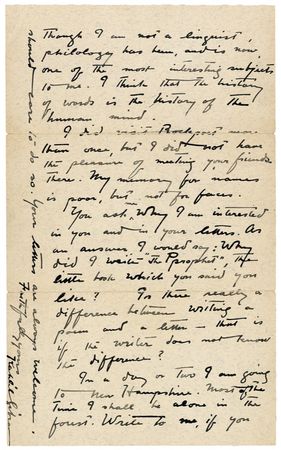 Though I am not a linguist,
philology has been, and is now,
one of the most interesting subjects
to me. I think that the history
of words is the history of the
human mind.
I did visit Rockport more
than once, but I did not have
the pleasure of meeting your friends
there. My memory for names
is poor, but not for faces
You ask, "Why I am interested
in you and in your letters. As
an answer I would say: Why
did I write "The Prophet", the
little book which you said you
like? Is there really a
difference between writing a
poem and a letter — that is
if the writer does not know
the difference?
In a day or two I am going
to New Hampshire. Most of the
time I shall be alone in the
forest. Write to me, if you
should care to do so. Your letters are always welcome.
Faithfully yours
Kahlil Gibran